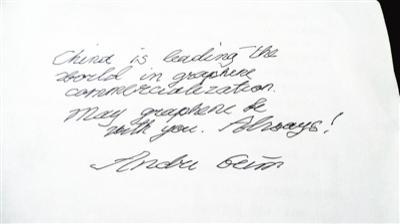 China is leading the
world in graphene
commercialization.
May graphene be
with you. Always!
Andre Geim